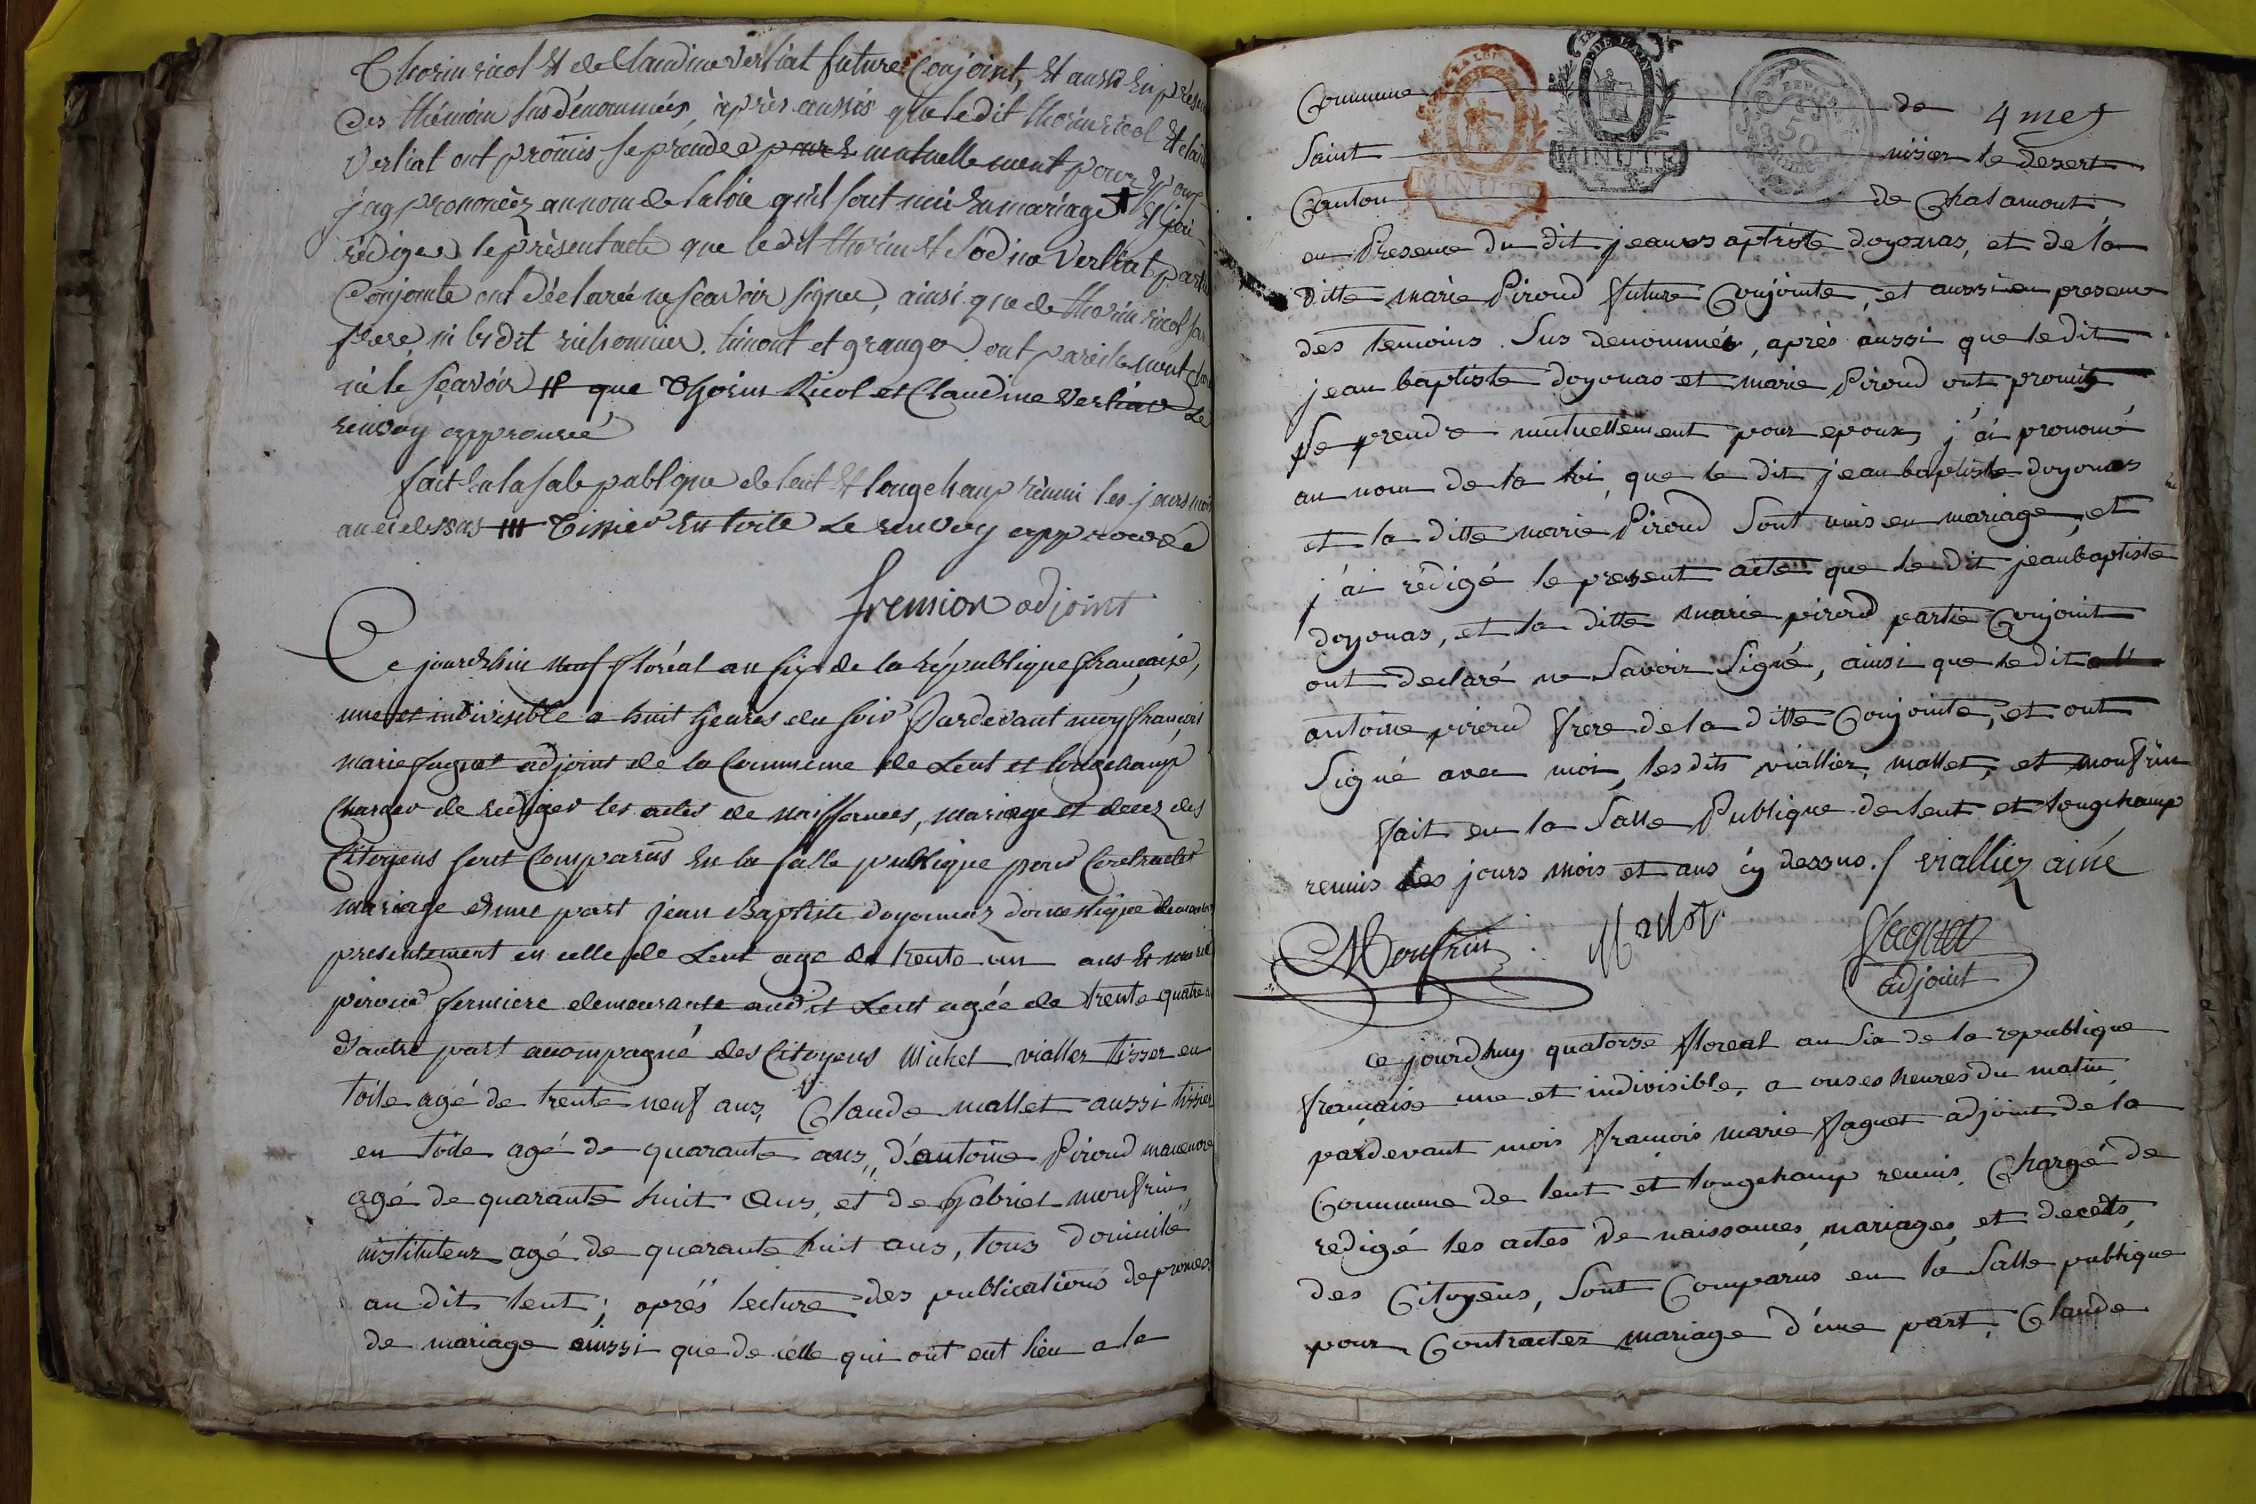 Thorin ricol Et de Claudine Verliat future Conjoint, Et aussi En
des thémoin susdénommés, après aussis que le dit thorin ricol Et
Verliat ont promis se prendre pour E mutuellement pour
j'ay prononcèz au nom de la loie quil sont unis En mariage Et j'ai
rédiger le présent acte que le dit thorin Et Clodine Verliat
Conjointe ont déclaréé ne scavoir signer, ainsi que de thorin ricol son
frere, ni lesdit richonnier. timont et granger ont pareillement
né le scavoir # que Thorin Ricol et Claudine Verliat Le
renvoy approuvéé
fait En la sale publique de lent Et longchamp rèuni les jours mois
an ci dessus Tissier En toile Le renvoy approuvée
fremion adjoint
Ce jourdhui neuf floréal an six de la république française,
une et indivisible a huit heures du soir Pardevant moy françois
marie faguet adjoint de la Commune de Lent et longchamp
Charger de rediger les actes de naissances, mariage et decez des
Citoyens sont Comparus En la salle publique pour Contracter
mariage d'une part jean Baptiste doyonnaz domestique
presentement en celle de Lent age de trente un ans Et marie
piroud fermiere demeurante audit Lent agée de trente quatre
d'autre part accompagné des Citoyens Michel viallier tisser en
toile agé de trente neuf ans, Claude mallet aussi tissier
en toile agé de quarante ans, d'antoine Piroud maneuvre
agé de quarante huit ans, et de Gabriel monfrin
instituteur agé de quarante huit ans, tous domicilié
au dit lent; aprés lecture des publications de promes
de mariage ainssi que de cèlle qui ont eut lieu a la
Commune de 4 mes
Saint nisier le desert
Canton de Chalamont
en Presence du dit jean baptiste doyonas, et de la
ditte marie Piroud future Conjointe, et aussi en presence
des temoins sus denommés, après aussi que le dit
jean baptiste doyonas et marie Piroud ont promis
se prendre mutuellement pour epoux, j'ai prononcé
au nom de la loi, que le dit jean baptiste doyonas
et la ditte marie Piroud sont unis en mariage, et
j'ai rédigé le present acte que le dit jean baptiste
doyonas, et la ditte marie piroud partie Conjoint
ont declaré ne savoir signé, ainsi que le dit
antoine piroud frere de la ditte Conjointe, et ont
signé avec moi, lesdits viallier, mallet, et monfrin
fait en la salle Publique de lent et longchamp
reunis les jours mois et ans cy dessus. / vialliez ainé
Monfrin Mallet faguet
adjoint
ce jourdhuy quatorse floreal an six de la republique
francaise une et indivisible, a onses heures du matin
pardevant mois francois marie faguet adjoint de la
Commune de lent et longchamp reunis, Chargé de
redigé les actes de naissances, mariages, et decéts
des Citoyens, sont Comparus en la salle publique
pour Contracter mariage d'une part, Claude